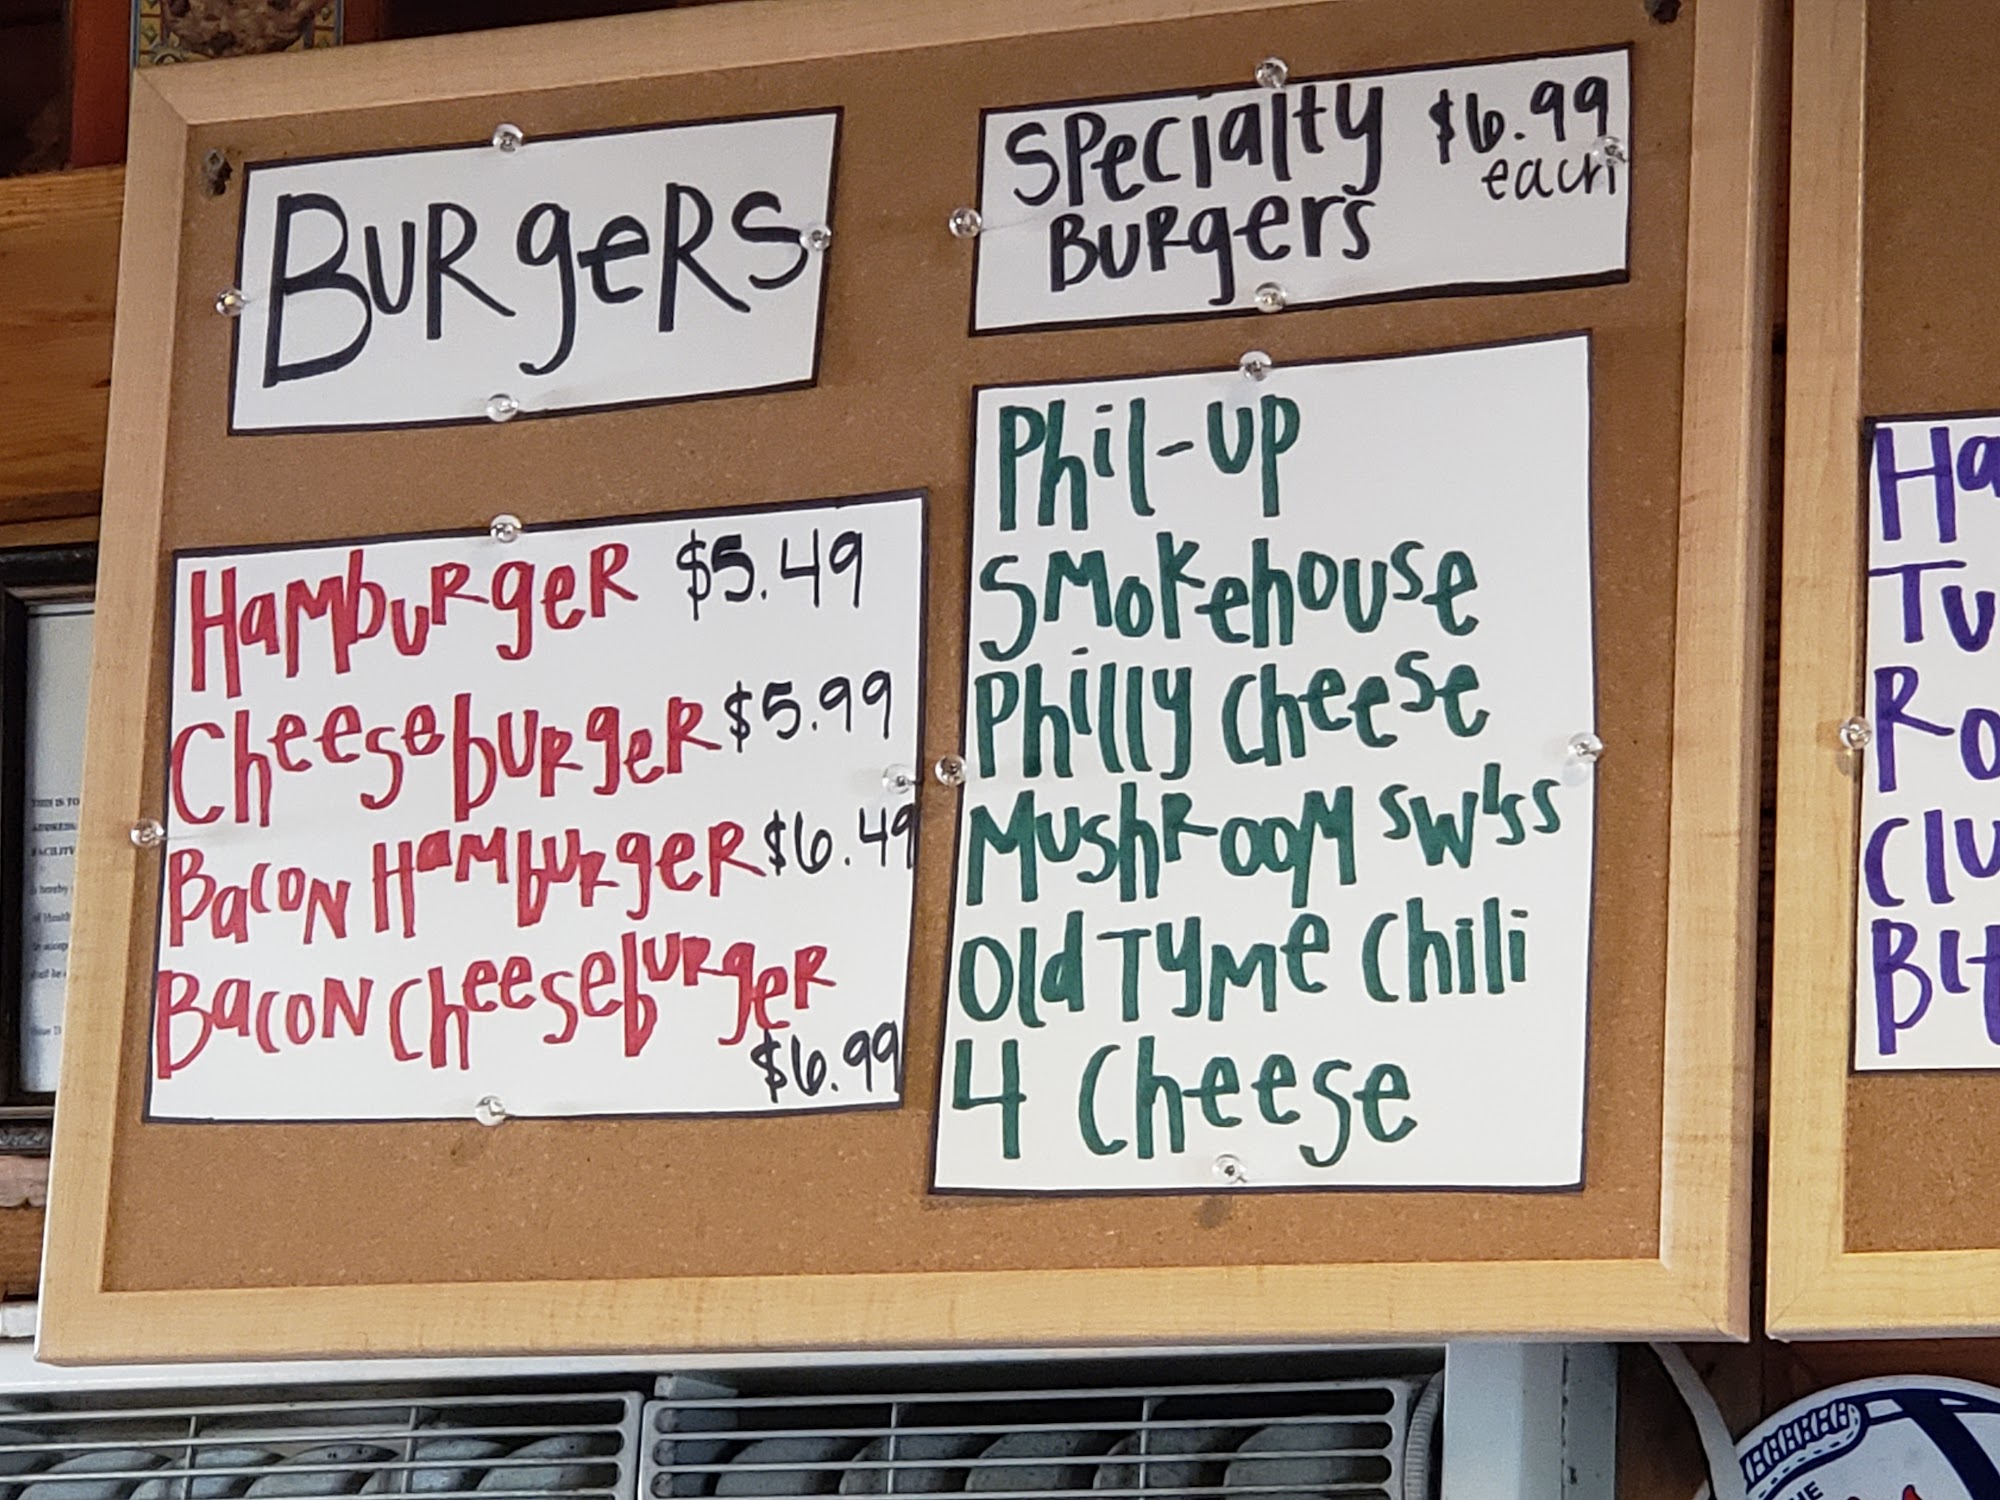 BURgeRS
Hamburger $5.49
Cheeseburger $5.99
Bacon Hamburger $6.49
Bacon Cheeseburger
$6.99
Specialty $6.99
each
Burgers
Phil-up
Smokehouse
Philly Cheese
Mushroom Swiss
Old Tyme Chili
4 Cheese
Ha
Tu
Ro
Clu
THIS IS TO
FACILITY
hereby
of Health
THE